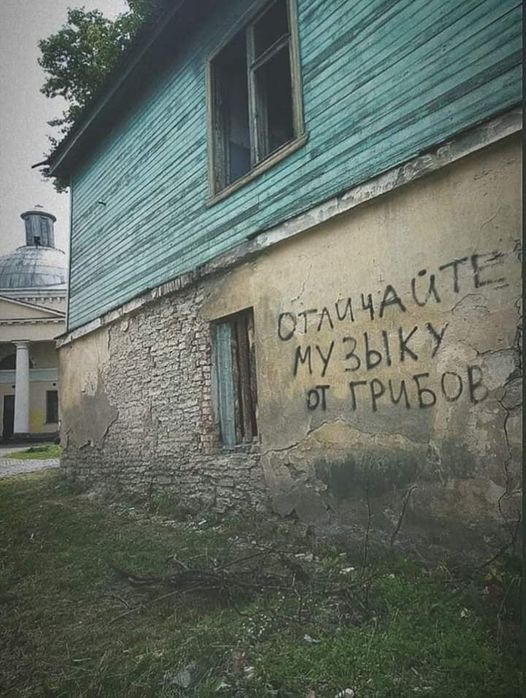 ОТЛИЧАЙТЕ
МУЗЫКУ
ОТ ГРИБОВ